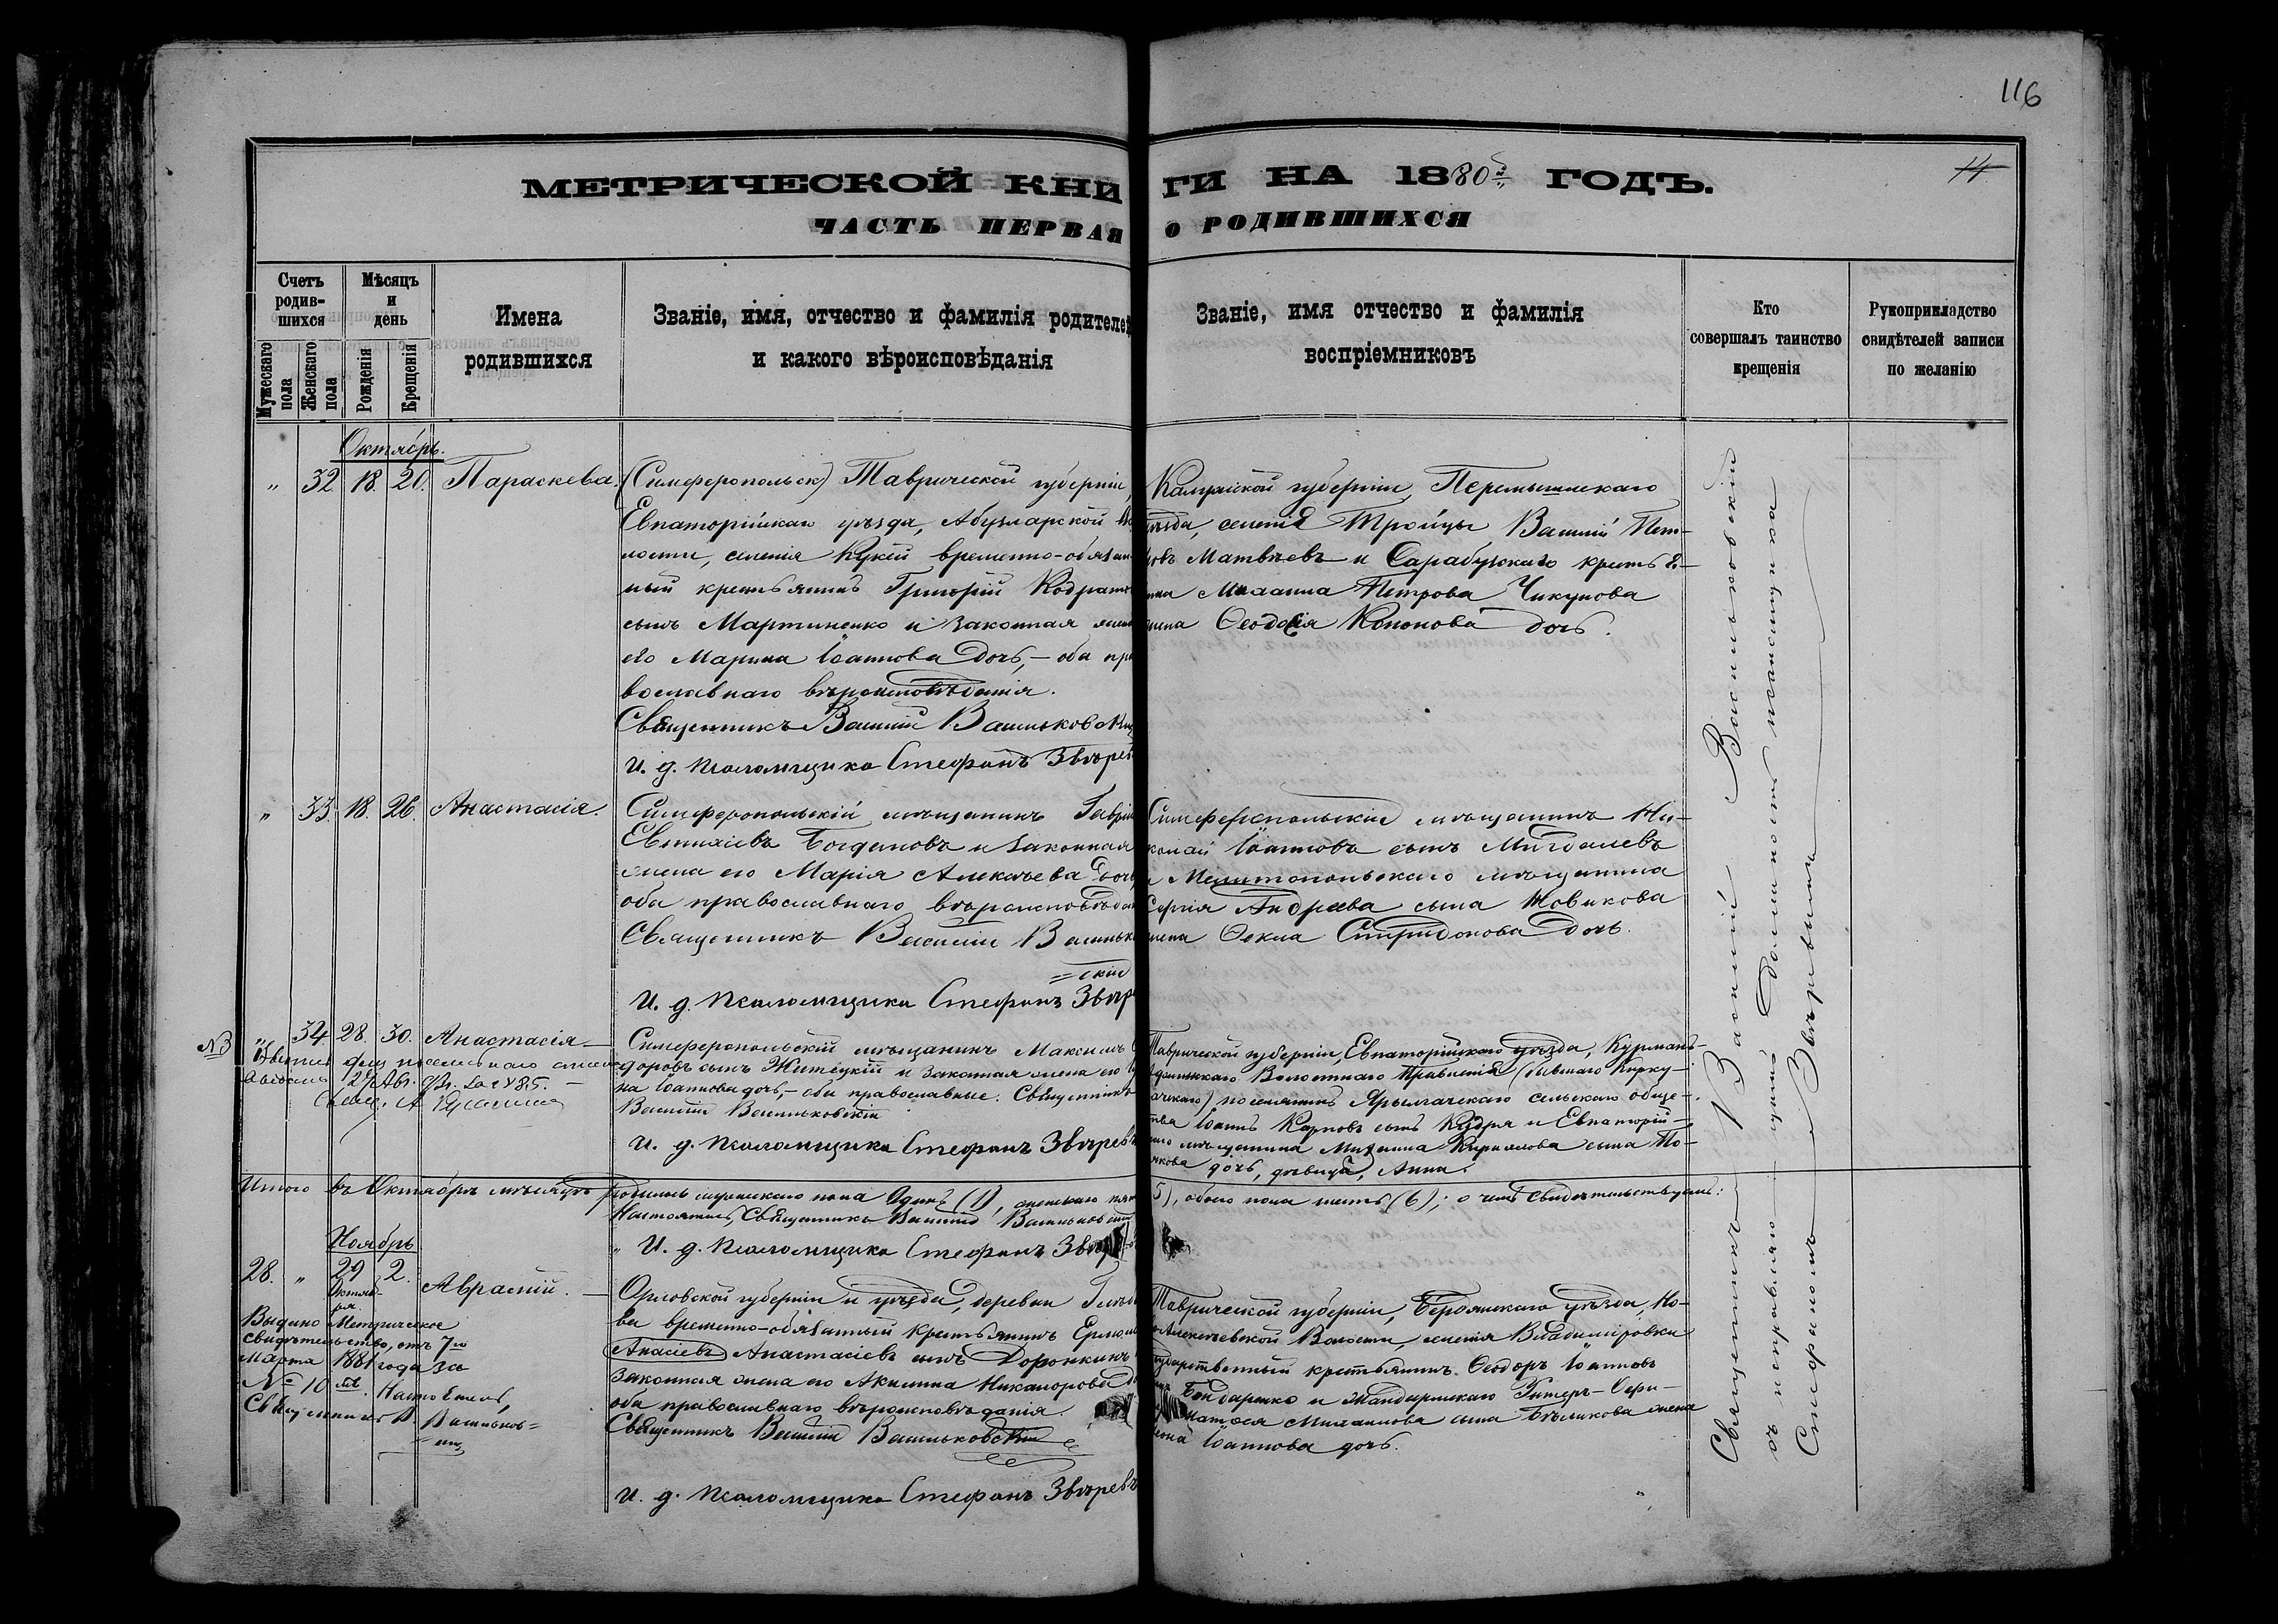 116
14
МЕТРИЧЕСКОЙ КНИГИ НА 1880й ГОДЪ.
ЧАСТЬ ПЕРВАЯ О РОДИВШИХСЯ
Счетъ родив-шихся
Мужескаго пола
Женскаго пола
Мѣсяцъ и день
Рожденія
Крещенія
Имена родившихся
Званіе, имя, отчество и фамилія родителей
и какого вѣроисповѣданія
Званіе, имя отчество и фамилія
воспріемниковъ
Кто
совершалъ таинство
крещенія
Рукоприкладство
свидѣтелей записи
по желанію
Октябрь.
" 32 18. 20. Параскева.
(Симферопольск) Таврической губерніи,
Евпаторійскаго уѣзда, Абузларской Во
лости, селенія временно-обязан
ный крестьянинъ Григорій Кодратовъ
сынъ Мартиненко и законная жена
его Марина Іоаннова дочь,— оба пра
вославнаго вѣроисповѣданія.
Священникъ Василій Васильковскій
И. д. псаломщика Стефанъ Звѣревъ
Калужской губерніи, Перемышлскаго
уѣзда, селенія Тройцы Василій Пет-
ровъ Матвѣевъ и Сарабузскаго крестья-
нина Михаила Петрова Чикунова
жена Ѳеодосія Кононова дочь.
" 33. 18. 26. Анастасія.
Симферопольскій мѣщанинъ Гавріилъ
Богдановъ и законная
жена его Марія Алексѣева дочь
оба православнаго вѣроисповѣдан
Священникъ Василій Васильков
=скій
И. д. псаломщика Стефанъ Звѣр
Симферопольскій мѣщанинъ Ни-
колай Іоанновъ сынъ Мигдалевъ
и Мелитопольскаго мѣщанина
Сергія Андреева сына Новикова
жена Ѳекла Спиридонова дочь.
№3 " 34 28. 30. Анастасія—
Симферопольскій мѣщанинъ Максимъ
доровъ сынъ Житецкій и законная жена его
на Іоаннова дочь,— оба православные. Священникъ
Василій Васильковскій
И. д. псаломщика Стефанъ Звѣревъ
Таврической губерніи, Евпаторійскаго уѣзда, Курман-
Волостнаго Правленія (бывшаго
поселянинъ Ярылгачскаго сельскаго обще-
ства Іоаннъ Карповъ сынъ Кудря и Евпаторій-
скаго мѣщанина Михаила Кирилова сына По-
дочь, дѣвица, Анна.
Итого въ Октябрѣ мѣсяцѣ родилось мужескаго пола Одинъ (1), женскаго пять
5), обоего пола шесть (6); о чемъ свидѣтельствуемъ:
Настоятель, Священникъ Василій Васильковскій
" И. д. псаломщика Стефанъ Звѣревъ
Ноябрь
28. " 29 Октября. 2. Аврамій.—
Выдано Метрическое
свидѣтельство, отъ 7го
Марта 1881 года за
№ 10мъ. Настоятель,
Священникъ В. Васильков=
=скій
Орловской губерніи и уѣзда, деревни
ва временно-обязанный крестьянинъ
Анастасіевъ сынъ Доронкинъ
законная жена его Акилина Никанорова д
оба православнаго вѣроисповѣданія.
Священникъ Василій Васильковскій
И. д. псаломщика Стефанъ Звѣревъ
Таврической губерніи, Бердянскаго уѣзда, Но-
воАлексѣевской Волости, селенія Владиміровки
государственный крестьянинъ Ѳеодоръ Іоанновъ
Бондаренко и Жандармскаго Унтеръ-Офи-
Михаилова сына Бѣликова жена
Іоаннова дочь.
Священникъ Василій Васильковскій
съ исправляющимъ должность псаломщика
Стефаномъ Звѣревымъ